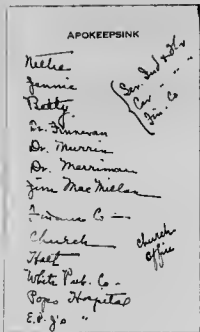 APOKEEPSINK
Nellie
Jennie
Betty
Dr. Finnevan
Dr. Murrin
Dr. Merriman
Jim MacMillan
Finance Co
Church
Holt
White Pub. Co
Pops Hospital
E.P. Jo "
Car " "
Fin. Co
Church
office